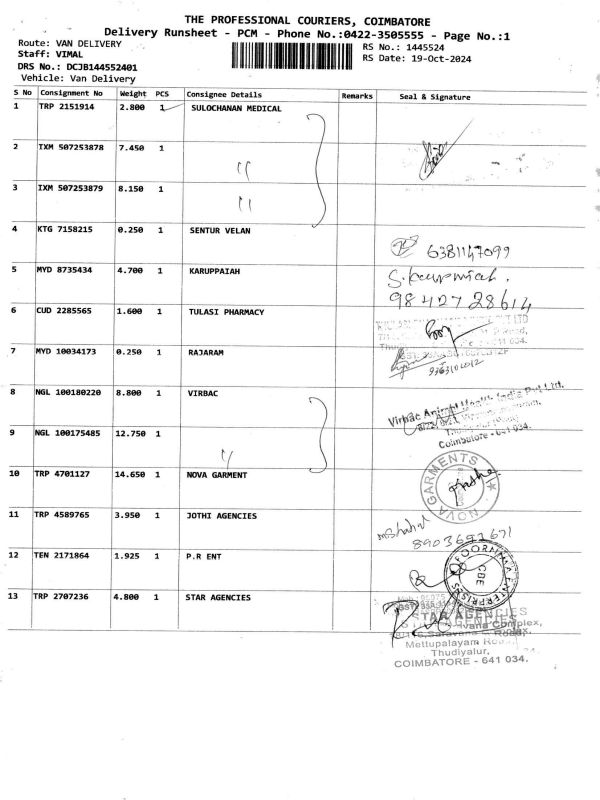 THE PROFESSIONAL COURIERS, COIMBATORE
Delivery Runsheet - PCM - Phone No.:0422-3505555 - Page No.:1
Route: VAN DELIVERY
Staff: VIMAL
DRS No.: DCJB144552401
Vehicle: Van Delivery
RS No.: 1445524
RS Date: 19-Oct-2024
S No Consignment No Weight PCS Consignee Details Remarks Seal & Signature
1 TRP 2151914 2.800 1 SULOCHANAN MEDICAL
2 IXM 507253878 7.450 1 "
3 IXM 507253879 8.150 1 "
4 KTG 7158215 0.250 1 SENTUR VELAN
6381147099
5 MYD 8735434 4.700 1 KARUPPAIAH
9842728614
6 CUD 2285565 1.600 1 TULASI PHARMACY
7 MYD 10034173 0.250 1 RAJARAM
8 NGL 100180220 8.800 1 VIRBAC
Virbac Animal Health India Pvt Ltd.
Coimbatore - 641 034.
9 NGL 100175485 12.750 1 "
10 TRP 4701127 14.650 1 NOVA GARMENT
NOVA GARMENTS
11 TRP 4589765 3.950 1 JOTHI AGENCIES
8903692671
12 TEN 2171864 1.925 1 P.R ENT
POORNIMA ENTERPRISES
CBE
13 TRP 2707236 4.800 1 STAR AGENCIES
STAR AGENCIES
Mettupalayam Road,
Thudiyalur,
COIMBATORE - 641 034.